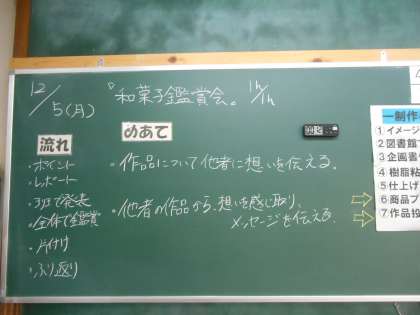 12/5(月)
『和菓子鑑賞会。 1h/1h
流れ
・ポイント
・レポート
・3班で発表
・全体で鑑賞
・片付け
・ふり返り
めあて
・作品について他者に想いを伝える。
・他者の作品から、想いを感じ取り、
メッセージを伝える。
一制作
1 イメージ
2 図書館
3 企画書
4 樹脂粘
5 仕上げ
6 商品プ
7 作品投